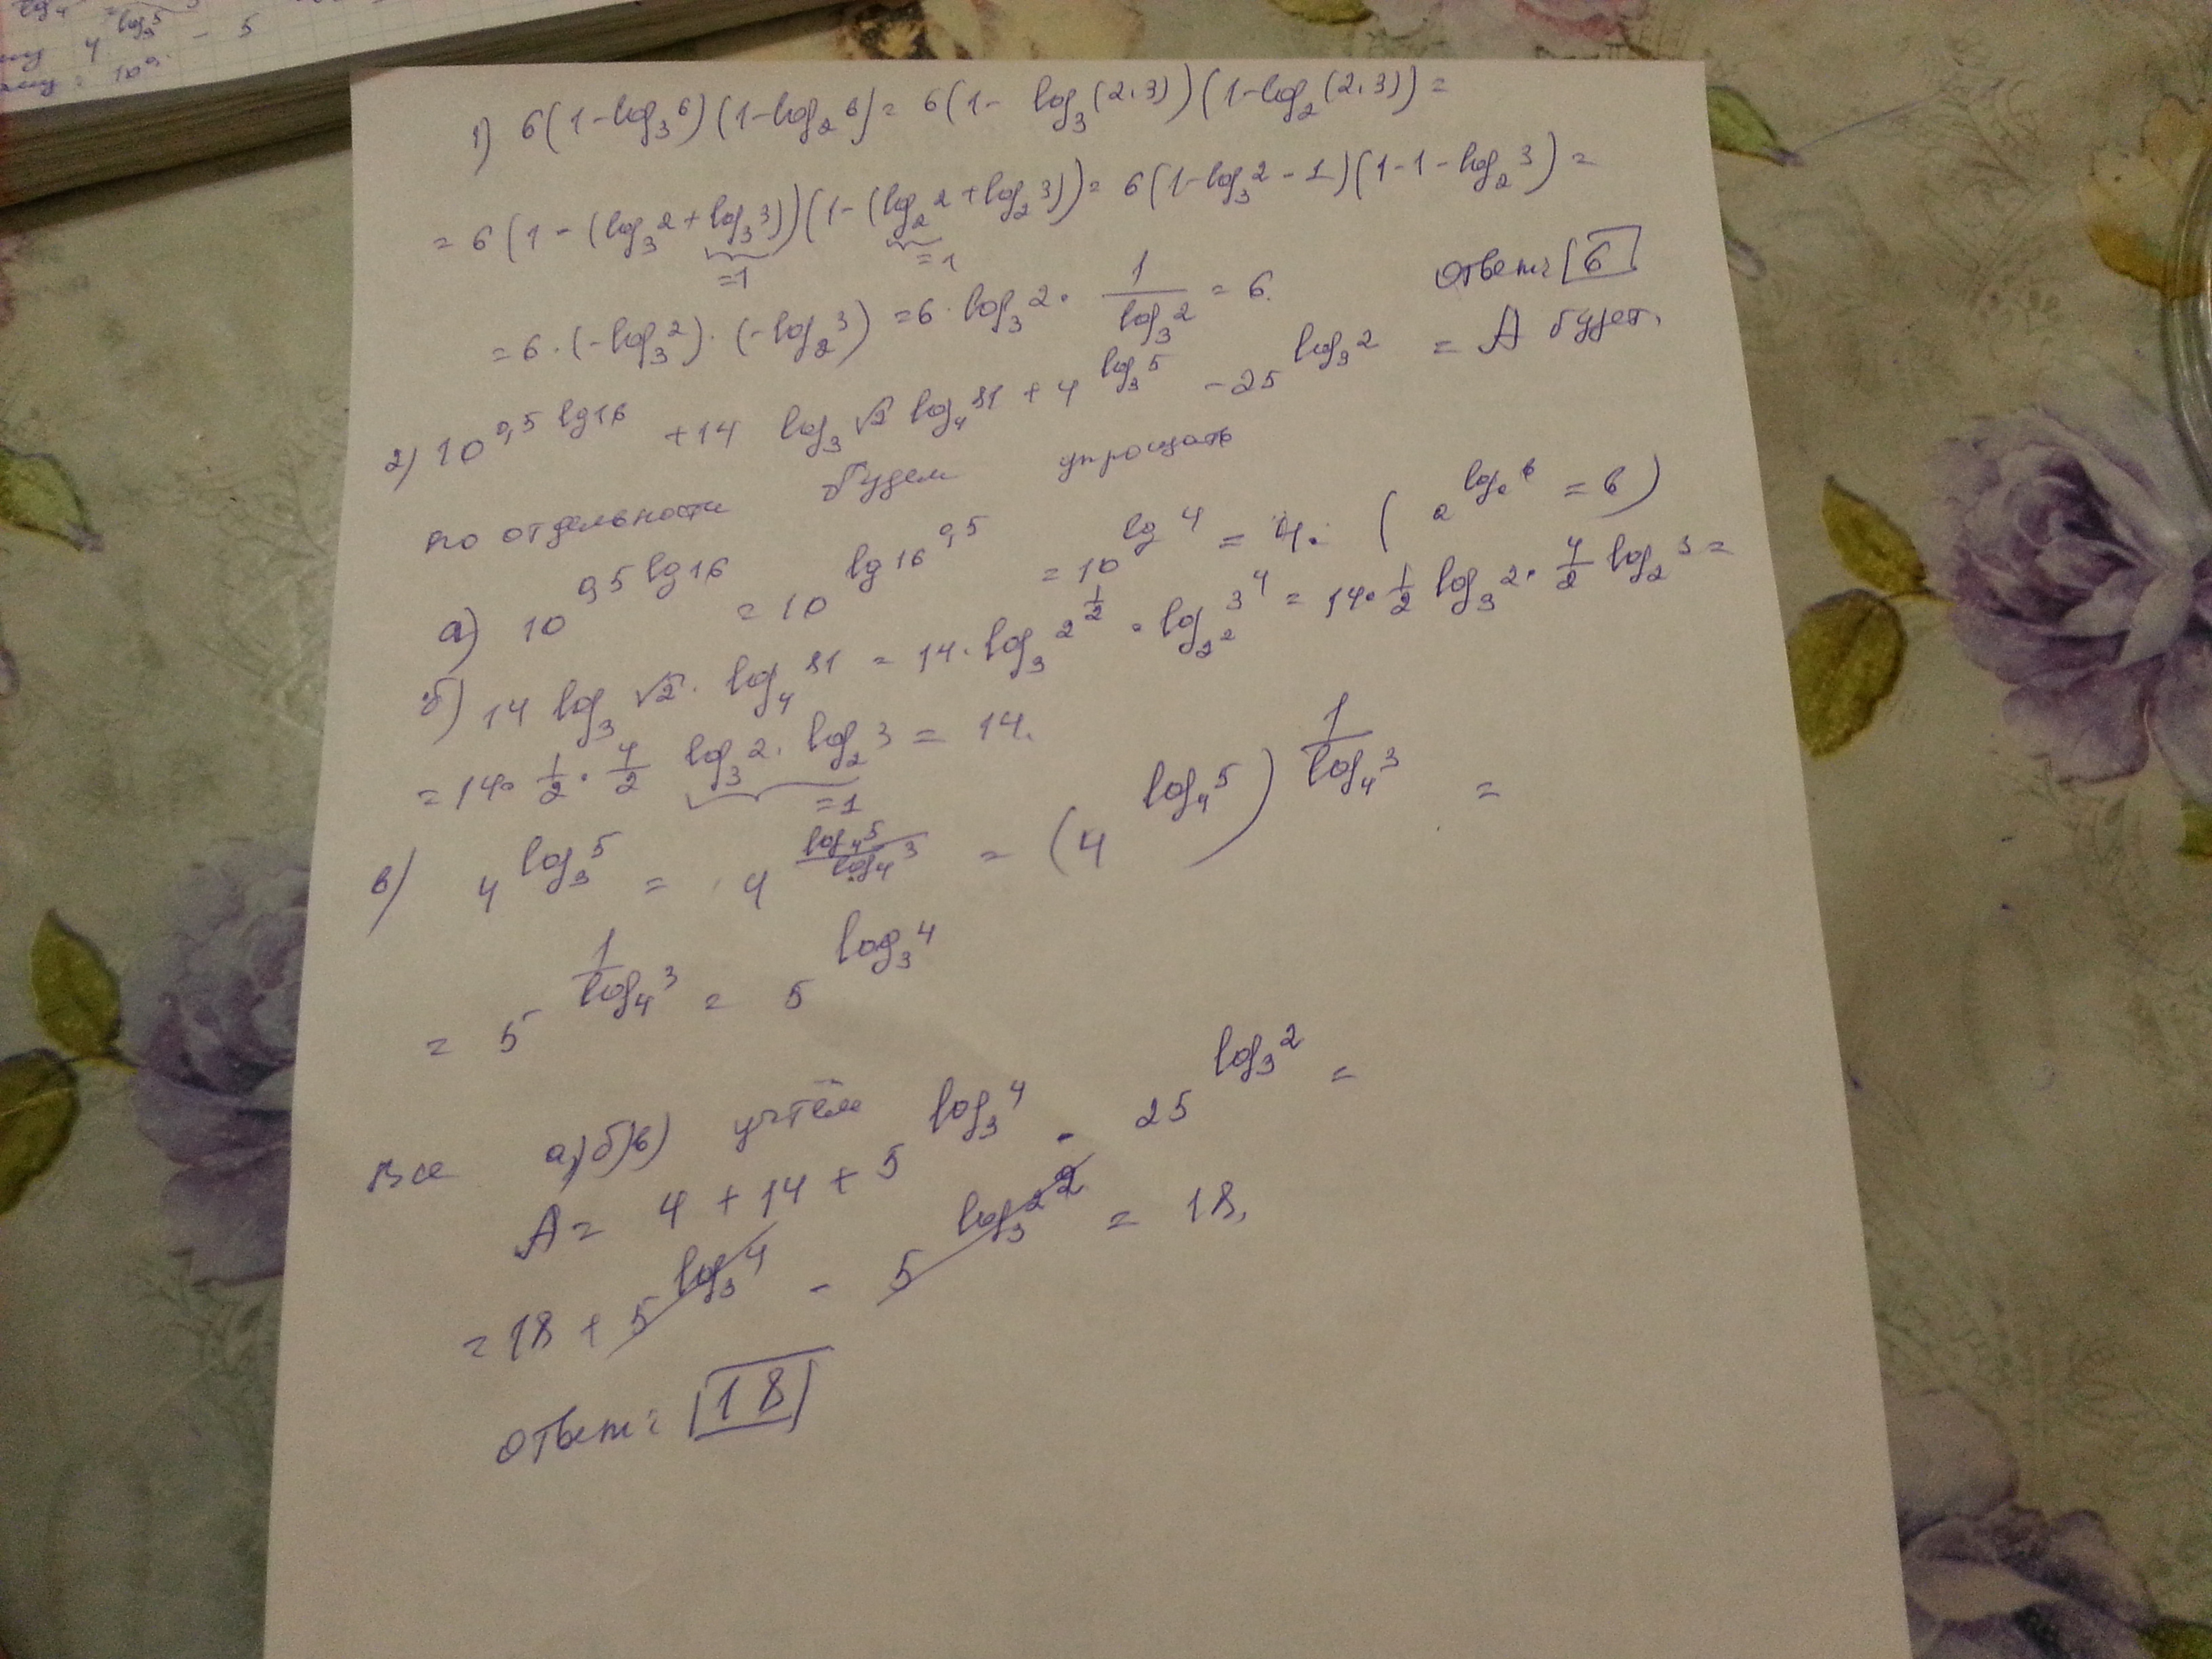 log₃5
4 – 5
1) 6(1-log₃6)(1-log₂6)= 6(1- log₃(2·3))(1-log₂(2·3))=
= 6(1-(log₃2+log₃3))(1-(log₂2+log₂3))= 6(1-log₃2-1)(1-1-log₂3)=
=1 =1
= 6·(-log₃2)·(-log₂3) =6·log₃2· 1/log₃2 = 6. Ответ: 6
2) 10^(0,5 lg16) +14 log₃√2 log₄81 + 4^(log₃5) -25^(log₃2) = A будет.
по отдельности будем упрощать
а) 10^(0,5 lg16) = 10^(lg16^(0,5)) = 10^(lg4) = 4. (a^(logₐb) = b)
б) 14 log₃√2· log₄81 = 14· log₃2^(1/2) · log_(2²)3⁴ = 14·1/2 log₃2· 4/2 log₂3=
= 14· 1/2 · 4/2 log₃2· log₂3 = 14.
=1
в) 4^(log₃5) = 4^(log₄5/log₄3) = (4^(log₄5))^(1/log₄3) =
= 5^(1/log₄3) = 5^(log₃4)
Все а)б)в) учтём
A= 4 + 14 + 5^(log₃4) - 25^(log₃2) =
=18 + 5^(log₃4) - 5^(log₃2²) = 18.
Ответ: 18